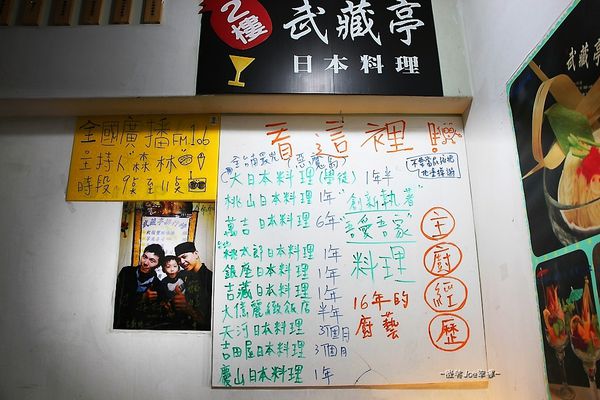 2樓
武藏亭
日本料理
全國廣播FM106
主持人"森林"
時段
看這裡!!
(惡魔島)
大日本料理(學徒) 1年半
桃山日本料理 1年
萬吉日本料理 6年
桃太郎日本料理 1年
銀座日本料理 1年
吉藏日本料理 1年
大億麗緻飯店 半年
天河日本料理 3個月
吉田屋日本料理 3個月
慶山日本料理 1年
"創新執著"
"吾愛吾家"
料理
16年的
廚藝
主廚經歷
武藏亭